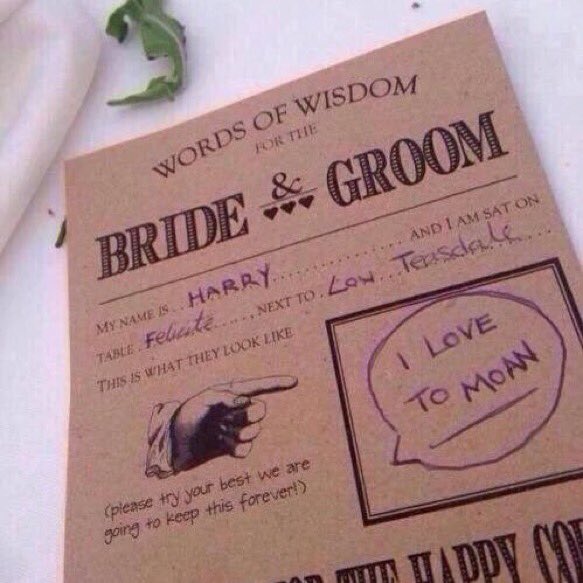 WORDS OF WISDOM
FOR THE
BRIDE & GROOM
MY NAME IS... HARRY................ AND I AM SAT ON
TABLE. Felicite......, NEXT TO. Lou...Teasdale....
THIS IS WHAT THEY LOOK LIKE
I LOVE
TO MOAN
(please try your best we are
going to keep this forever!)
THE HAPPY